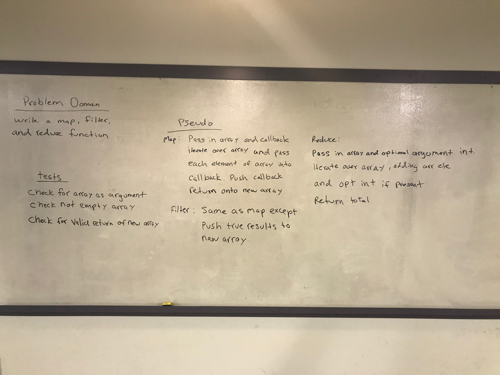 Problem Domain
write a map, filter,
and reduce function
tests
Check for array as argument
Check not empty array
Check for valid return of new array
Pseudo
Map: Pass in array and callback
iterate over array and pass
each element of array into
callback. Push callback
return onto new array
Filter: Same as map except
Push true results to
new array
Reduce:
Pass in array and optional argument int.
Iterate over array, adding arr ele
and opt int if present
Return total